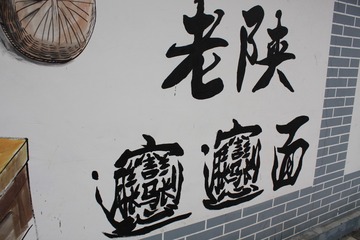 老陕
𰻞𰻞面